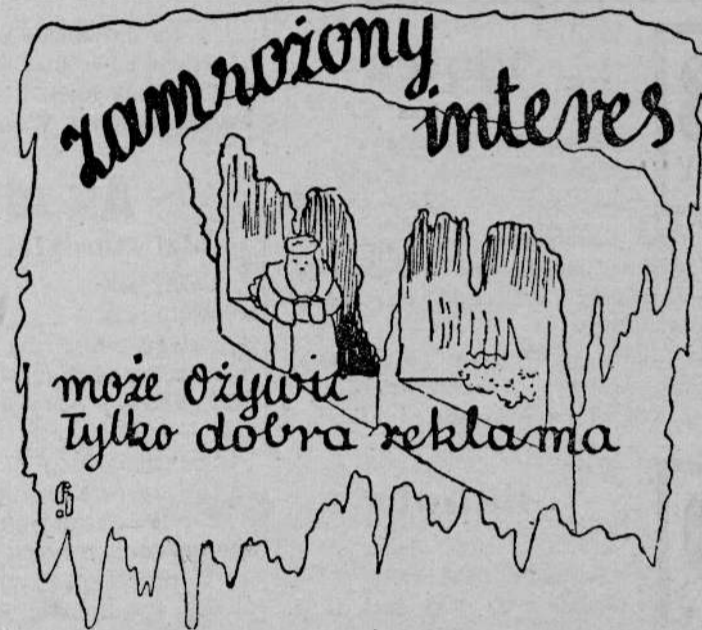 zamrożony
interes
może ożywić
Tylko dobra reklama